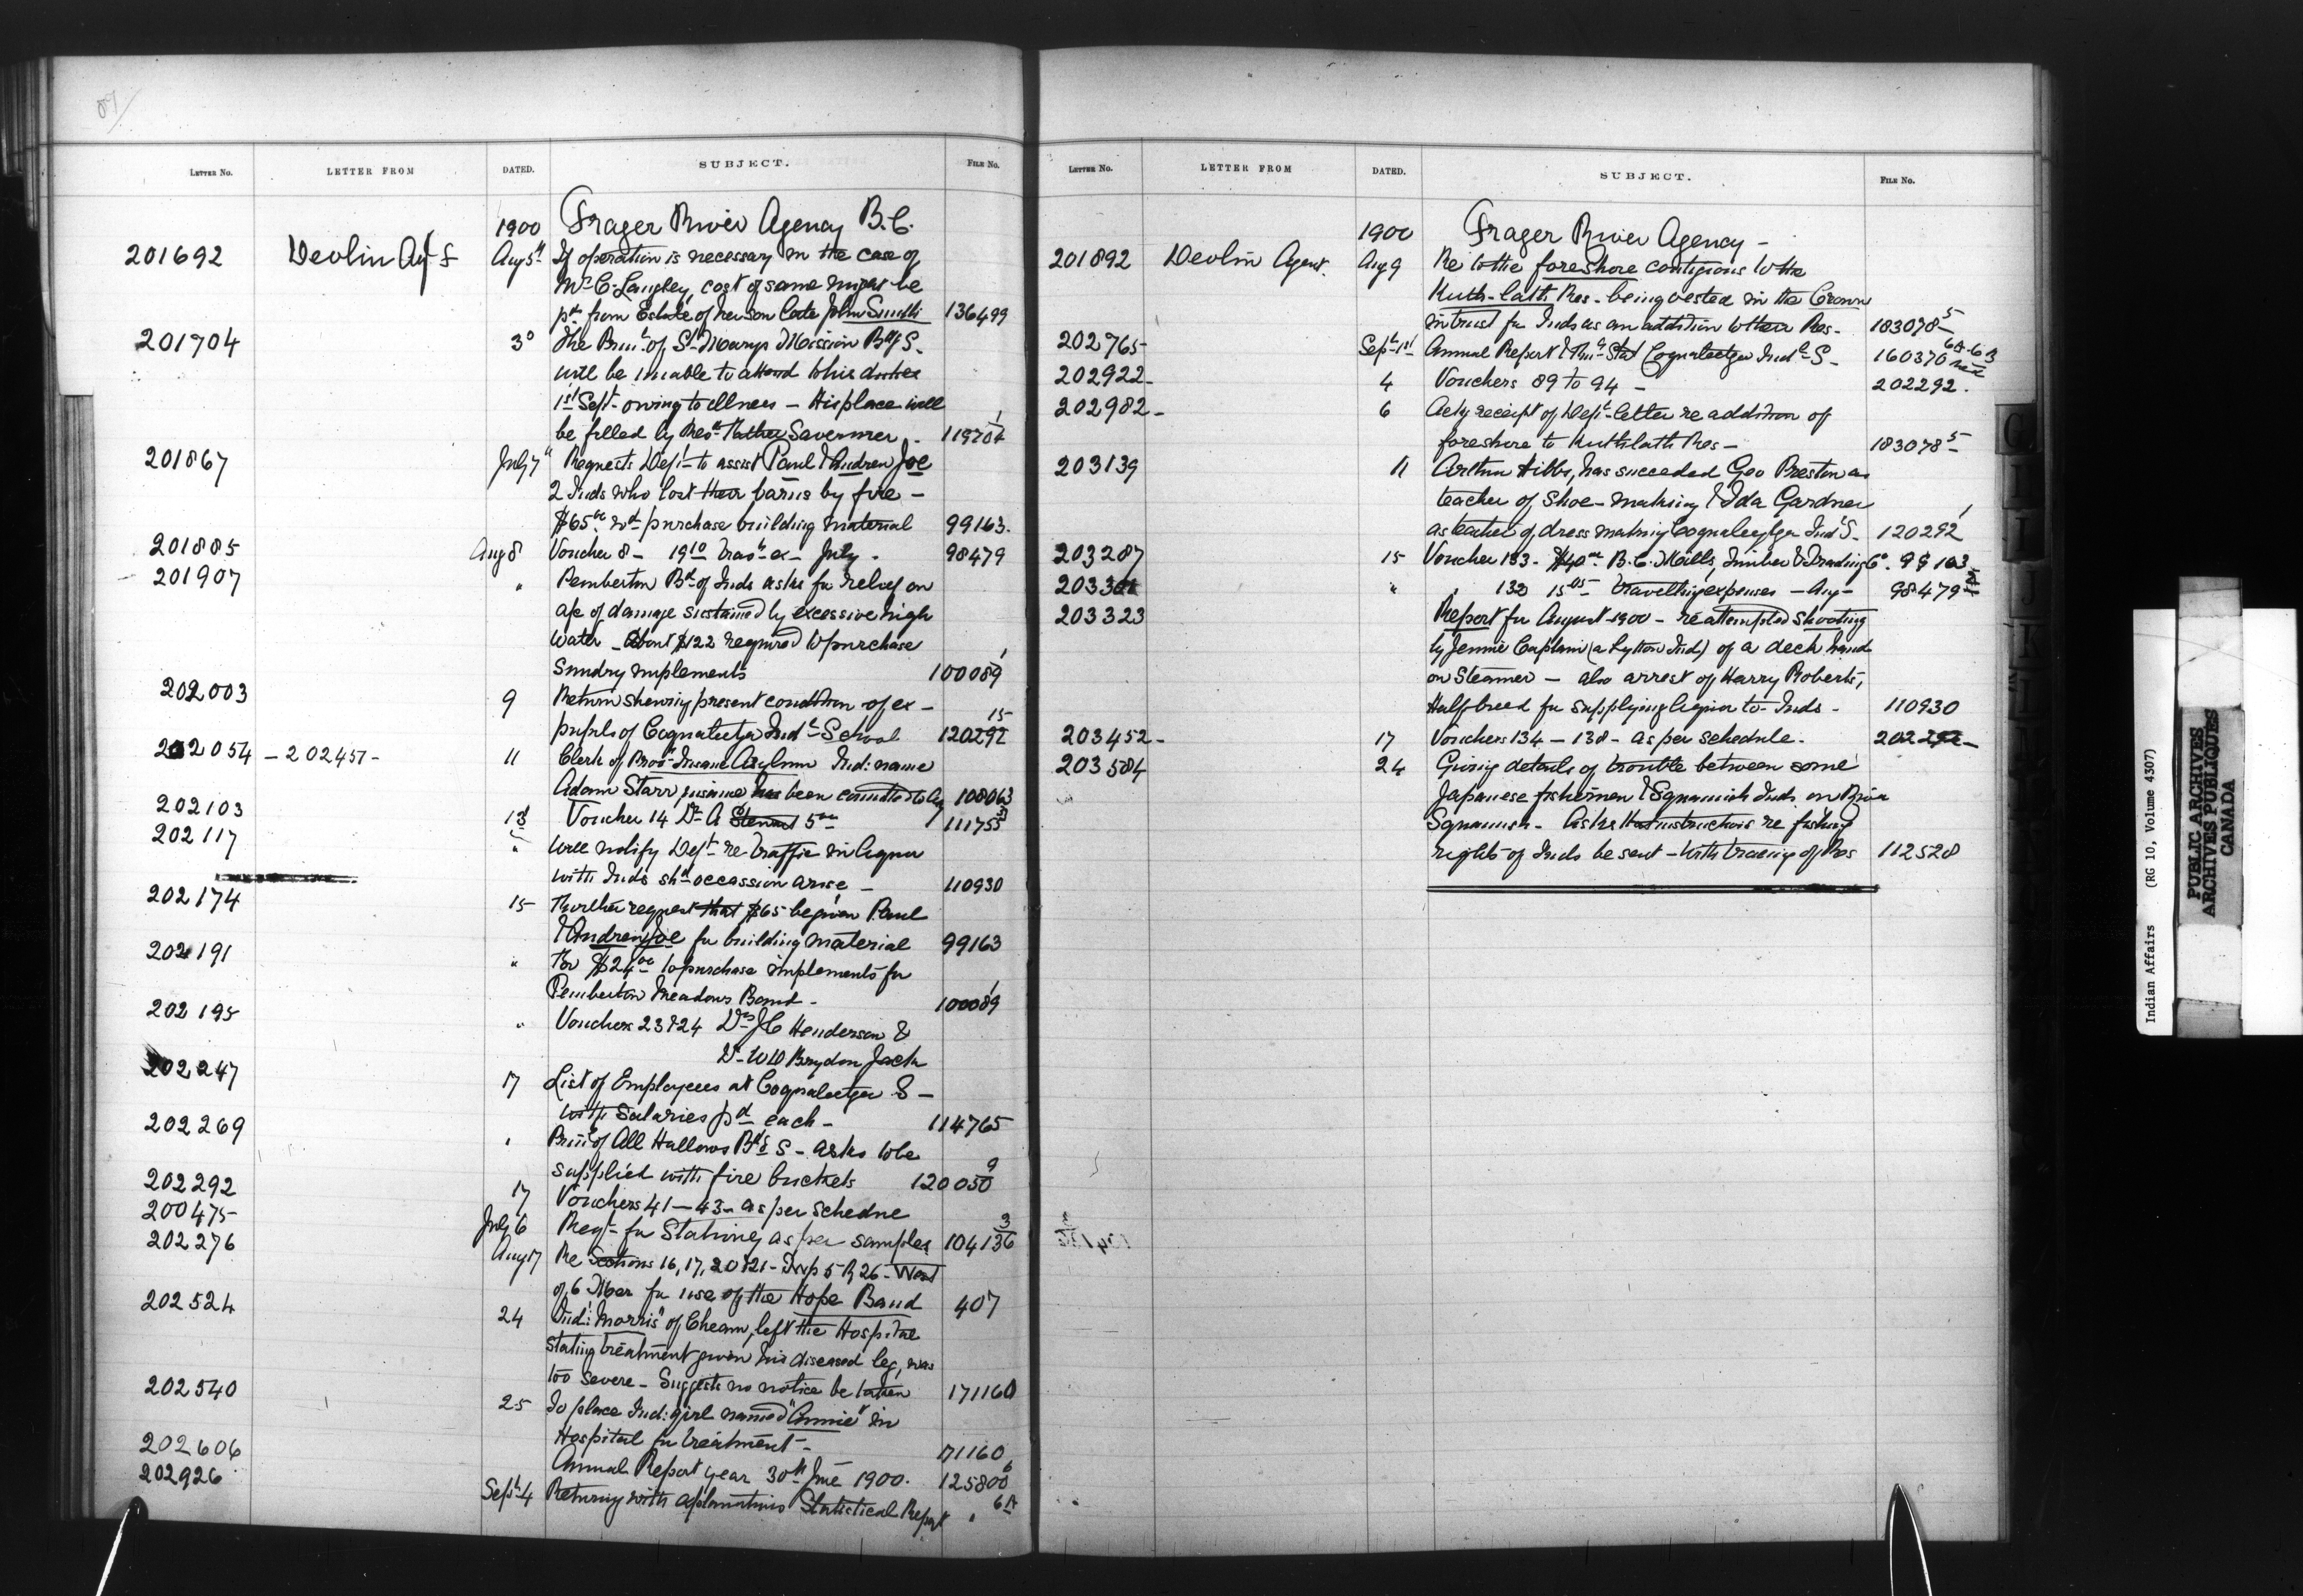 LETTER NO. LETTER FROM DATED. SUBJECT. FILE NO.
1900 Frager River Agency B.C.
201692 Devlin Agt F Aug 5th If operation is necessary in the case of
Mrs C. Langley, cost of same might be
pd from Estate of her son late John Smith 136499
201704 3d The Prin. of St Marys Mission Bdg S.
will be unable to attend to his duties
1st Sept. owing to illness – His place will
be filled by Revd Father 119704 1
201867 July 7th Requests Dept to assist Paul & Andrew Joe
2 Inds who lost their barns by fire –
$65.00 wd purchase building material 99163.
201885 Aug 8 Voucher 8 – 19 10 Trav ex – July. 98479
201907 " Pemberton Bd of Inds asks for relief on
a/c of damage sustained by excessive high
water – About $122 required to purchase
Sundry implements 100089 1
202003 9 Return shewing present condition of ex-
pupils of Coqualeetza Indl School 120292 15
202054 – 202457 – 11 Clerk of Prov. Insane Asylum Ind: name
Adam Starr insane has been 108063
202103 13 Voucher 14 Dr A Stewart 5 00 111755
202117 " Will notify Dept re traffic in liquor
with Inds shd occassion arise – 110930
202174 15 Further request that $65 be given Paul
& Andrew Joe for building material 99163
202191 " For $24 00 to purchase implements for
Pemberton Meadows Band – 100089 1
202195 " Vouchers 23 & 24 Drs J C Henderson &
Dr W D Brydon Jack
202247 17 List of Employees at Coqualeetza S –
with Salaries pd each – 114765
202269 " Prin. of All Hallows Bdg S – asks to be
supplied with fire buckets 120050 9
202292 17 Vouchers 41 – 43 – as per schedue
200475 July 6 Reqt for Stationery as per samples 104136 3
202276 Aug 17 Re Sections 16, 17, 20 & 21 – Twp 5 R 26 – West
of 6 Mer for use of the Hope Band 407
202524 24 Ind: "Morris" of Cheam, left the Hospital
stating treatment given his diseased leg, was
too severe – Suggests no notice be taken 171160
202540 25 To place Ind: girl named "Annie" in
Hospital for treatment – 71160
202606 Annual Report year 30th June 1900. 125800 6
202926 Sept 4 Returning with explanations Statistical Report " 6A
LETTER NO. LETTER FROM DATED. SUBJECT. FILE NO.
1900 Frager River Agency –
201892 Devlin Agent. Aug 9 Re to the foreshore contigious to the
Kuth-lalth Res – being vested in the Crown
in trust for Inds as an addition to their Res – 183078 5
202765 Sept 1st Annual Report & Stat Coqualeetza Indl S – 160370 6A-6B
202922 – 4 Vouchers 89 to 94 – 202292.
202982 – 6 Ackg receipt of Dept letter re addition of
foreshore to Kuthlalth Res – 183078 5
203139 11 Arthur Hibbs, has succeeded Geo Preston as
teacher of Shoe-making & Ida Gardner
as teacher of dress making Coqualeetza Indl S – 120292 1
203287 15 Voucher 133 – $40 00 B.C. Mills, Timber & Trading Co. 99163
" " 132 15 05 travelling expenses – Aug – 98479
203323 Report for August 1900 – re attempted shooting
by Jennie Captain (a Lytton Ind) of a deck hand
on Steamer – also arrest of Harry Roberts,
Halfbreed for supplying liquor to Inds – 110930
203452 – 17 Vouchers 134 – 138 – as per schedule – 202292 –
203584 24 Giving details of trouble between some
Japanese fishermen & Squamish Inds on River
Squamish – Asks that instructions re fishing
rights of Inds be sent – with tracing of Res 112528
Indian Affairs (RG 10, Volume 4307)
PUBLIC ARCHIVES
ARCHIVES PUBLIQUES
CANADA